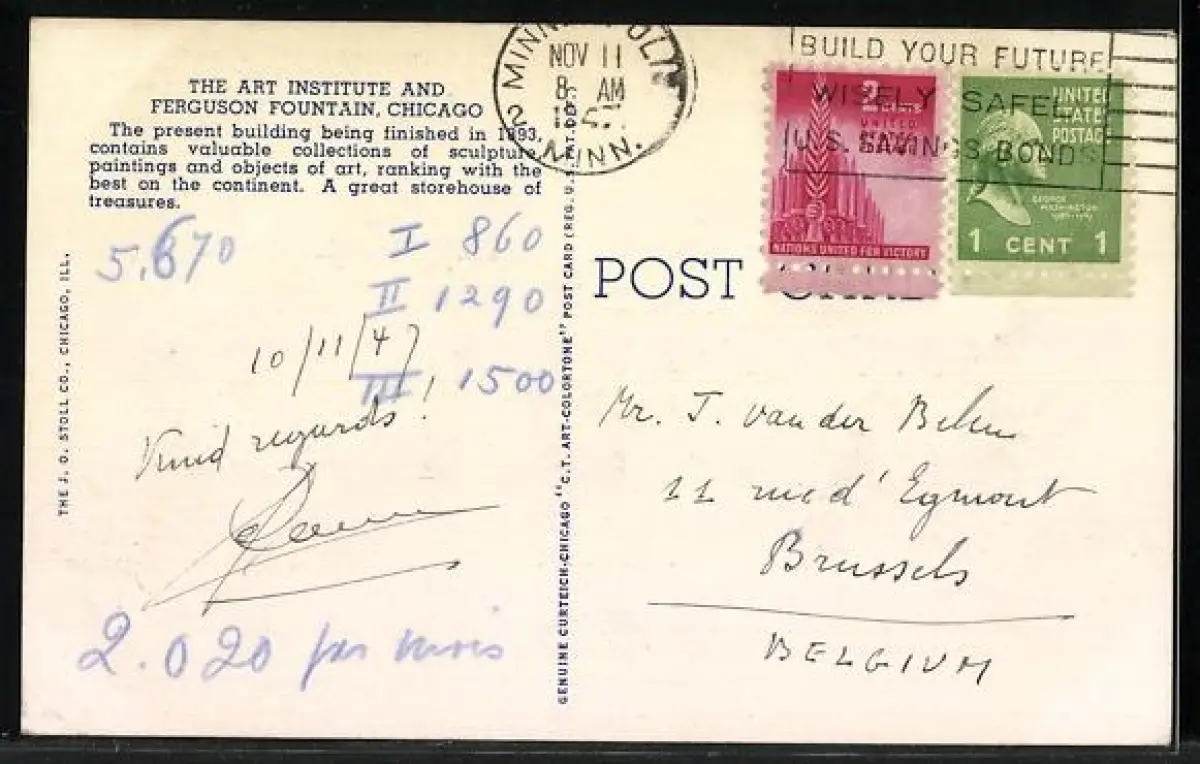 THE ART INSTITUTE AND
FERGUSON FOUNTAIN, CHICAGO
The present building being finished in 1893,
contains valuable collections of sculpture,
paintings and objects of art, ranking with the
best on the continent. A great storehouse of
treasures.
5.670
I 860
II 1290
III 1500
10/11/47
Kind regards!
2.020 par mois
THE J. O. STOLL CO., CHICAGO, ILL.
GENUINE CURTEICH-CHICAGO "C.T. ART-COLORTONE" POST CARD (REG. U.S. PAT. OFF.)
NOV 11
8 AM
2
MINN.
BUILD YOUR FUTURE
WISELY SAFELY
U.S. SAVINGS BONDS
2 CENTS
UNITED
STATES
NATIONS UNITED FOR VICTORY
UNITED
STATES
POSTAGE
GEORGE
WASHINGTON
1 CENT 1
POST CARD
Mr. J. van der
11 rue d'Egmont
Brussels
BELGIUM